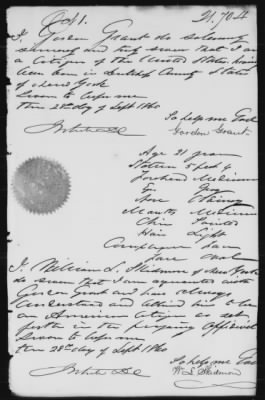 Oct 1. 21.704
I Gordon Grant do solemnly
swear and truly swear that I am
a Citizen of the United States having
been born in County State
of New York
Sworn to before me
this 28th day of Sept 1860 So help me God
Gordon Grant
Age 21 years
Stature 5 feet
Forehead Medium
Eyes Grey
Nose
Mouth Medium
Chin Pointed
Hair Light
Complexion
Face oval
I William L. Skidmore of New York
do swear that I am acquainted with
Gordon Grant and have always
Understood and him to be
an American Citizen as set
forth in the Affidavit
Sworn to before me
this 28th day of Sept. 1860 So help me God
W L Skidmore